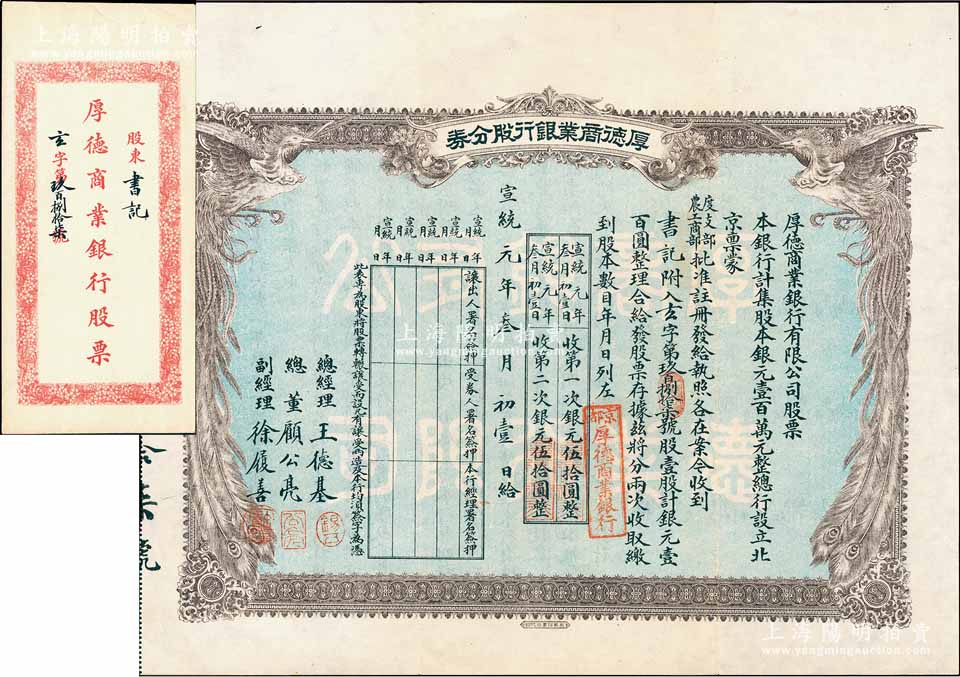 上海陽明拍賣
www.yangmingauction.com
厚德商業銀行股票
股東 書記
玄字第玖百捌拾柒號
厚德商業銀行股分券
厚德商業銀行有限公司股票
本銀行計集股本銀元壹百萬元整總行設立北
京票蒙
度支部農工商部批准註冊發給執照各在案今收到
書記附入玄字第玖百捌拾柒號股壹股計銀元壹
百圓整理合給發股票存據茲將分兩次收取繳
到股本數目年月日列左
宣統元年叁月初壹日收第一次銀元伍拾圓整
宣統元年叁月初壹日收第二次銀元伍拾圓整
厚德商業銀行
宣統元年叁月初壹日給
宣統 年 月 日
宣統 年 月 日
宣統 年 月 日
宣統 年 月 日
宣統 年 月 日
讓出人署名簽押
受券人署名簽押
本行經理署名簽押
此表專為股東將股票轉輾讓賣而設凡有讓受兩造及本行均須簽字為憑
總經理 王德基
總董 顧公亮
副經理 徐履善
上海陽明拍賣
www.yangmingauction.com
上海陽明拍賣
www.yangmingauction.com